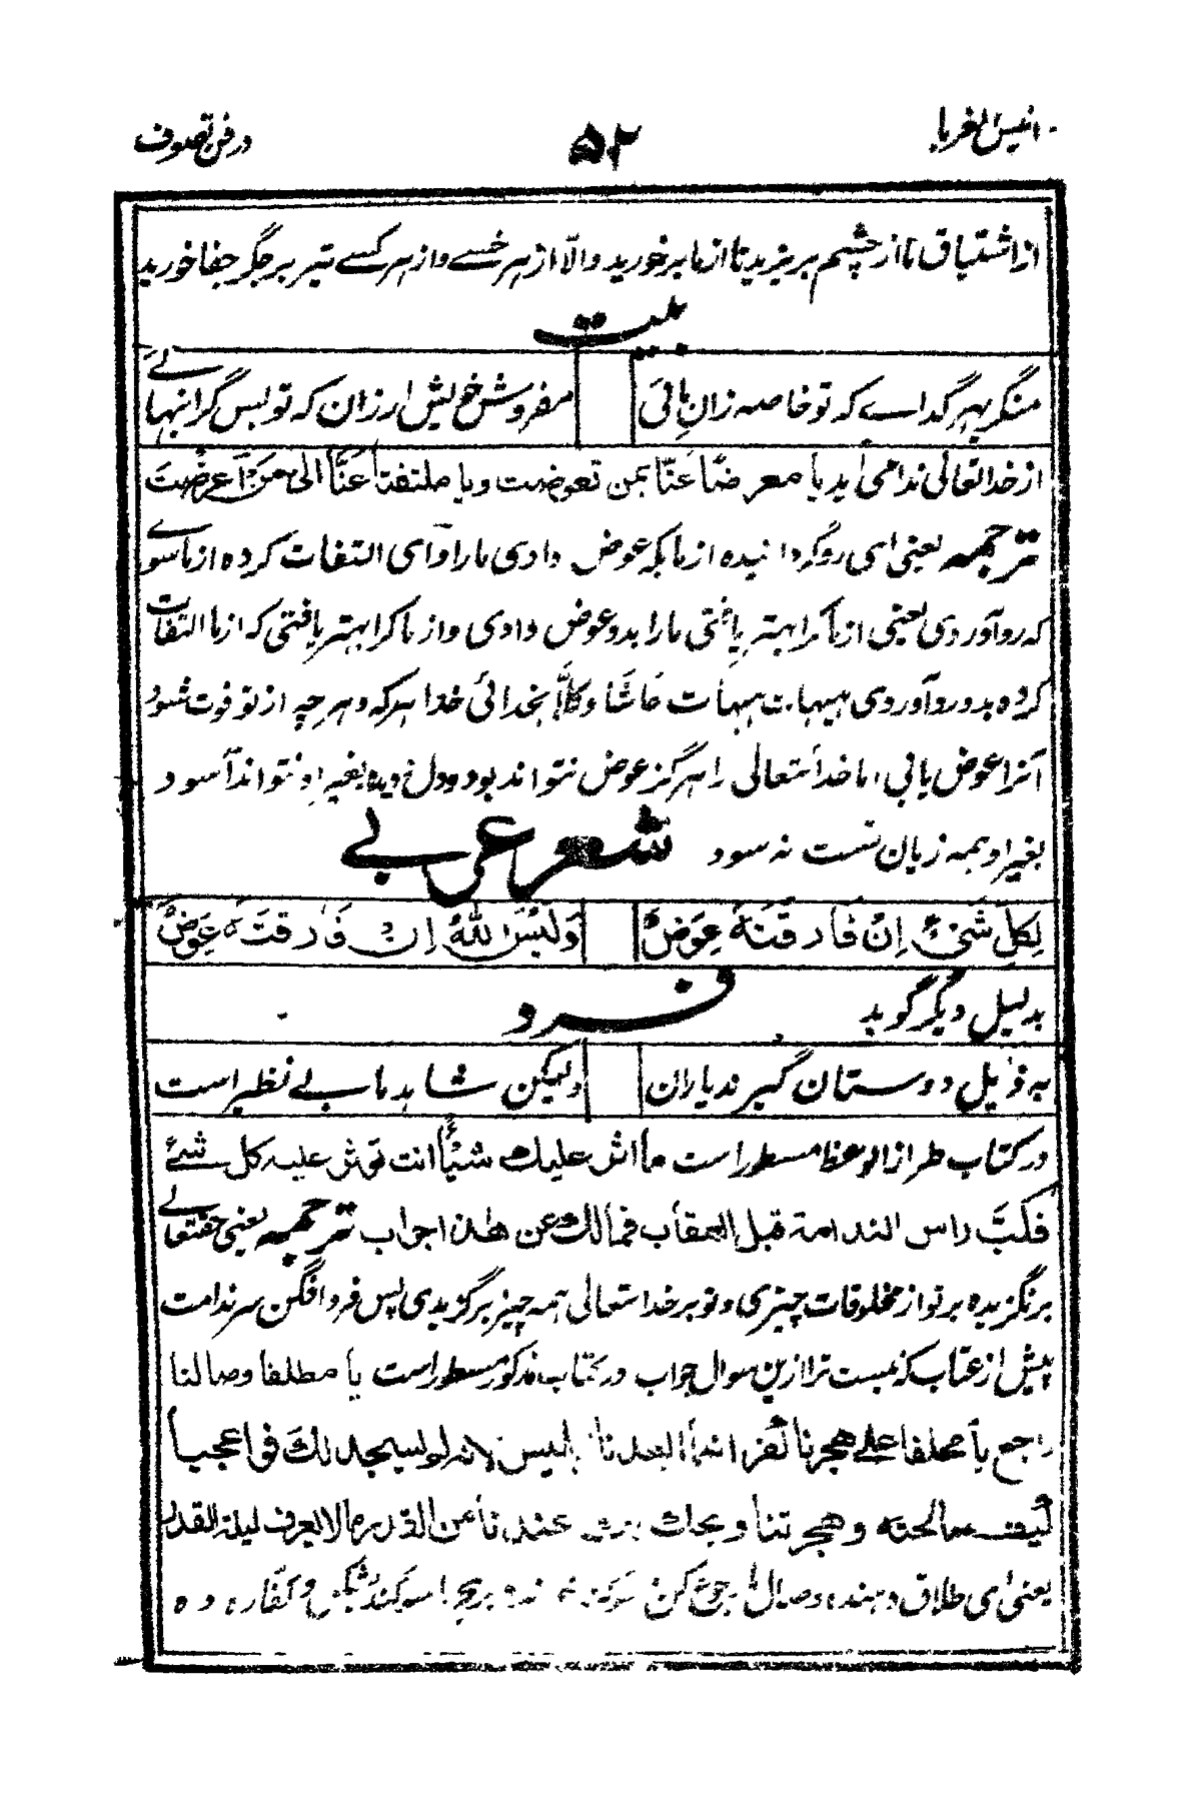 انیس الغربا
۵۲
در فن تصوف
از اشتیاق ما از چشم بریزید تا از ما بر خورید والّا از هر خسے و از هر کسے تیر بر جگر جفا خورید
بیت
منگر بهر گداے که تو خاصه زانِ مائی
مفروش خویش ارزان که تو بس گرانبهائے
از خدا تعالی ندا می آید یا معرضًا عَنّا بمن تعوضت و یا ملتفتاً عَنَّا الی من اعرضت
ترجمه یعنی ای رو گردانیده از ما بکه عوض دادی ما را و آی التفات کرده از ما سوے
که رو آوردی یعنی از ما کرا بهتر یافتی ما را بدو عوض دادی و از ما کرا بهتر یافتی که از ما التفات
کرده بدو رو آوردی هیهات هیهات حَاشَا و کَلَّا بخدائی خدا هر که و هر چه از تو فوت شود
آنرا عوض یابی اما خدا تعالی را هرگز عوض نتواند بود و دل و دیده بغیر او نتواند آسود
بغیر او همه زیان تست نه سود
شعر عربے
لِکلِّ شَیْءٍ اِنْ فَارَقْتَهُ عِوَضٌ
وَلَیْسَ لِلّٰهِ اِنْ فَارَقْتَهُ عِوَضٌ
بدلیل دیگر گوید
فرد
به هر یک دوستان گیرند یاران
ولیکن شاهد ما بے نظیر است
در کتاب طراز الوعظ مسطور است ما اثر علیک شیئاً انت توثر علیه کل شئے
فکبَّ راس الندامة قبل العقاب فمالک عن هذا جواب ترجمه یعنی حقتعالے
برنگزیده بر تو از مخلوقات چیزی و تو بر خدا تعالی همه چیز برگزیدی پس فرو افگن سر ندامت
پیش از عتاب که نیست ترا ازین سوال جواب در کتاب مذکور مسطور است یا مطلقا وصالنا
راجع یا محلفا علے هجرنا کفر انما ابعدنا ابلیس لانه لم یسجد لک فوا عجبا
کیف صالحته و هجرتنا و یحک عندنا من القدر ما لا یعرف لیلة القدر
یعنی ای طلاق دهنده وصال ما رجوع کن بر هجر ما سوگند بشکن و کفاره ده